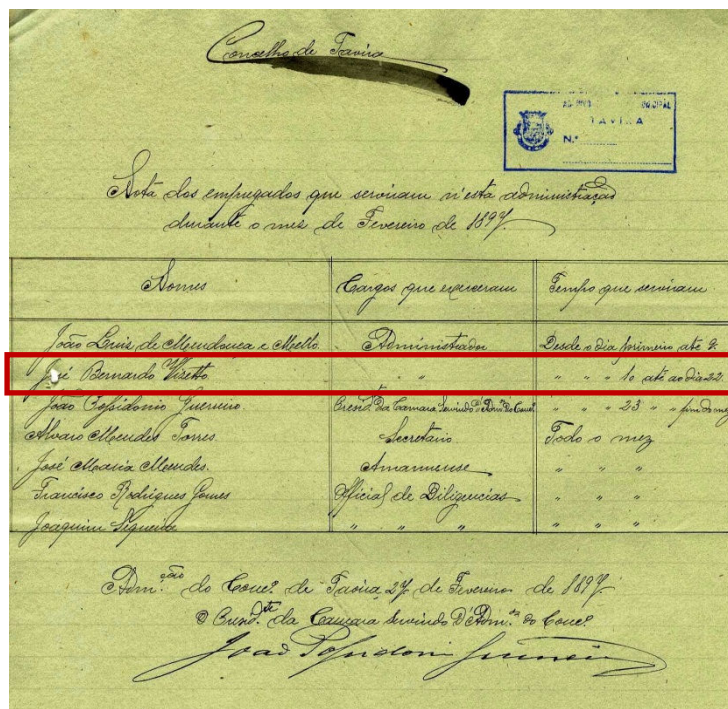 Concelho de Tavira
TAVIRA
N.º
Nota dos empregados que serviram n'esta administração
durante o mez de Fevereiro de 1897
Nomes Cargos que exerceram Tempo que serviram
João Luis de Mendonca e Mello. Administrador Desde o dia primeiro até 9.
José Bernardo Vizetto " " " " " 10 até ao dia 22.
João Possidonio Guerreiro. Presid.te da Camara Servindo d'Adm.or do Conc.º " " " 23 " " fim do mez
Alvaro Mendes Torres Secretario Todo o mez
José Maria Mendes. Amanuense " " "
Francisco Rodrigues Gomes Official de Diligencias " " "
Joaquim Sequeira " " " " " "
Adm.ção do Conc.º de Tavira, 27 de Fevereiro de 1897
O Presid.te da Camara Servindo D'Adm.or do Conc.º
João Possidonio Guerreiro